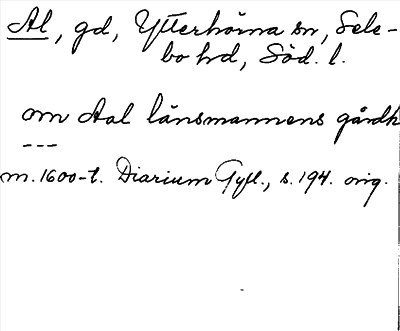 Al, gd, Ytterhörna sn, Sele-
bo hd, Söd. l.
om Aal länsmannens gårdh
---
m. 1600-t. Diarium Gyll., s. 194. orig.